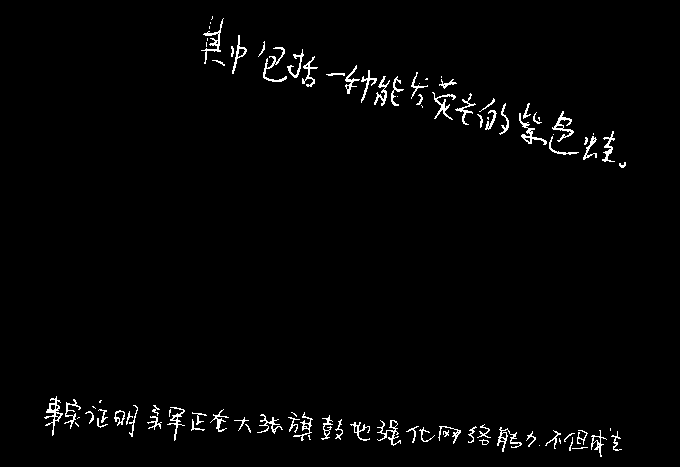 其中包括一种能发荧光的紫色蛙。
事实证明美军正在大张旗鼓地强化网络能力不但成立